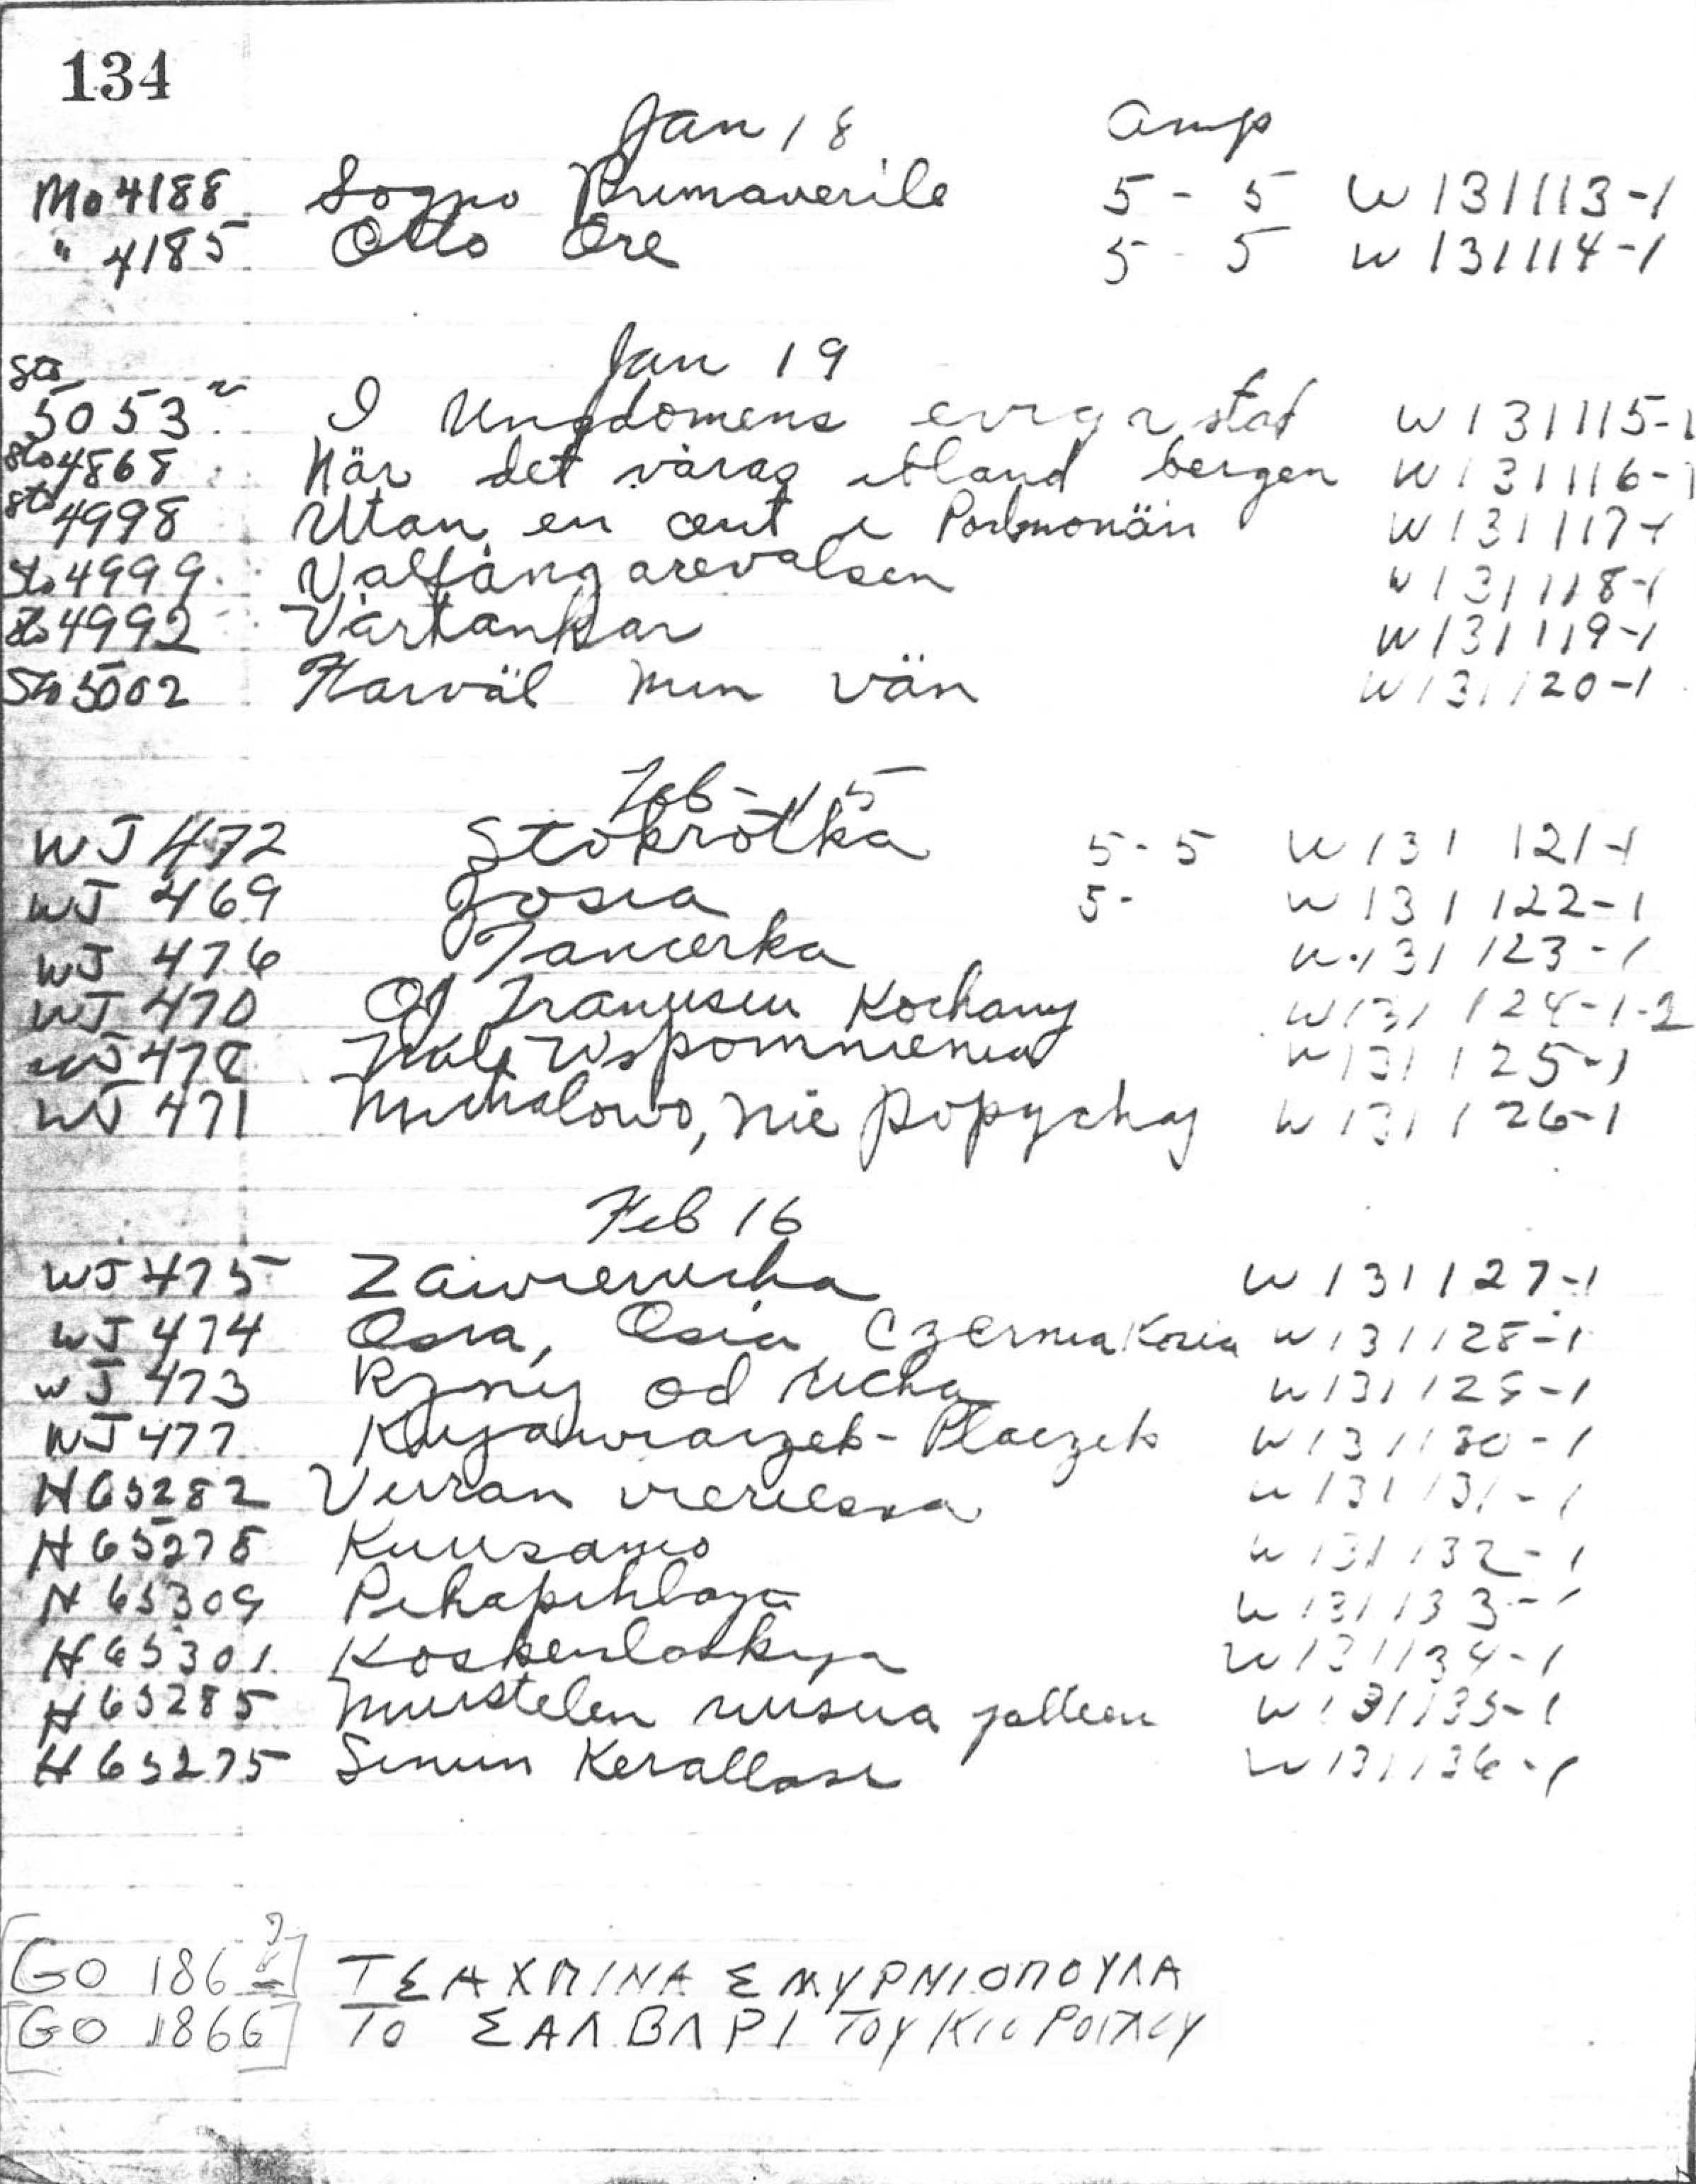 134
Jan 18 Amp
Mo 4188 Sogno Primaverile 5 - 5 W 131113-1
" 4185 Otto Ore 5 - 5 W 131114-1
Jan 19
Sto
5053 I Ungdomens eviga stad W 131115-1
Sto 4868 När det våras ibland bergen W 131116-1
Sto 4998 Utan en cent i Portmonän W 131117-1
Sto 4999 Valfångarevalsen W 131118-1
Sto 4992 Vårtankar W 131119-1
Sto 5002 Farväl min vän W 131120-1
Feb - 15
WJ 472 Stokrotka 5 - 5 W 131 121-1
WJ 469 Zosia 5 - W 131 122-1
WJ 476 Tancerka W 131 123-1
WJ 470 Oj Franusiu Kochany W 131 124-1-2
WJ 478 Wspomnienia W 131 125-1
WJ 471 Michalowo, nie popychaj W 131 126-1
Feb 16
WJ 475 Zawierucha W 131127-1
WJ 474 Osia, Osia Czernia Kozia W 131128-1
WJ 473 Rznij od ucha W 131129-1
WJ 477 Kujawiaczek - Placzek W 131130-1
H 65282 Virran vierilssa W 131131-1
H 65278 Kuusamo W 131132-1
H 65309 Pihapihlaja W 131133-1
H 65301 Koskenlaskija W 131134-1
H 65285 Muistelen sinua jalleen W 131135-1
H 65275 Sinun Kerallasi W 131136-1
GO 186 ? ΤΣΑΧΠΙΝΑ ΣΜΥΡΝΙΟΠΟΥΛΑ
GO 1866 ΤΟ ΣΑΛΒΑΡΙ ΤΟΥ ΚΙΟΡΟΓΛΟΥ